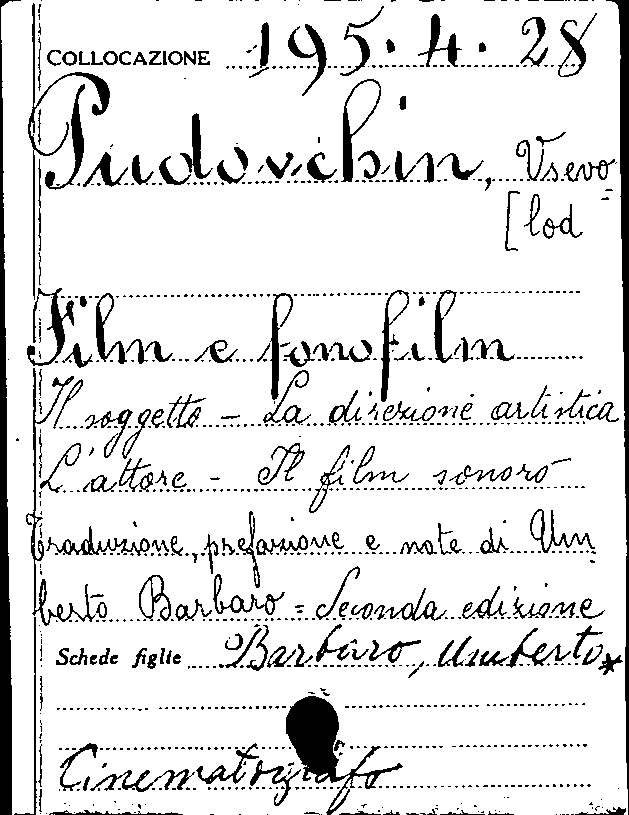 COLLOCAZIONE 195.4.28
Pudovchin, Vsevo=
[lod
Film e fonofilm
Il soggetto - La direzione artistica
L'attore - Il film sonoro
Traduzione, prefazione e note di Um_
berto Barbaro = Seconda edizione
Schede figlie Barbaro, Umberto *
Cinematografo